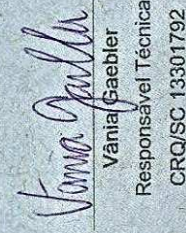 Vânia Gaebler
Vânia Gaebler
Responsável Técnica
CRQ/SC 13301792